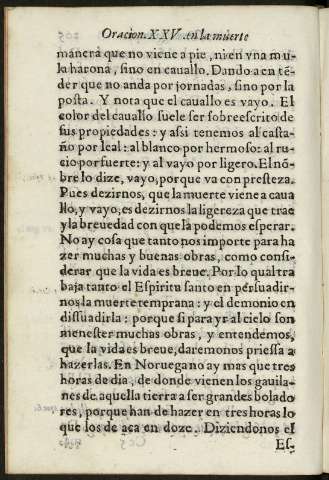 Oracion. XXV. en la muerte
manera que no viene a pie, ni en vna mu-
la harona, sino en cauallo. Dando a entẽ-
der que no anda por jornadas, sino por la
posta. Y nota que el cauallo es vayo. El
color del cauallo suele ser sobreescrito de
sus propiedades: y assi tenemos al casta-
ño por leal: al blanco por hermoso: al ru-
cio por fuerte: y al vayo por ligero. El nõ-
bre lo dize, vayo, porque va con presteza.
Pues dezirnos, que la muerte viene a caua
llo, y vayo, es dezirnos la ligereza que trae
y la breuedad con que la podemos esperar.
No ay cosa que tanto nos importe para ha
zer muchas y buenas obras, como consi-
derar que la vida es breue. Por lo qual tra
baja tanto el Espiritu santo en persuadir-
nos la muerte temprana: y el demonio en
dissuadirla: porque si para yr al cielo son
menester muchas obras, y entendemos,
que la vida es breue, daremonos priessa a
hazerlas. En Noruega no ay mas que tres
horas de dia, de donde vienen los gauila-
nes de aquella tierra a ser grandes bolado
res, porque han de hazer en tres horas lo
que los de aca en doze. Diziendonos el
Es-